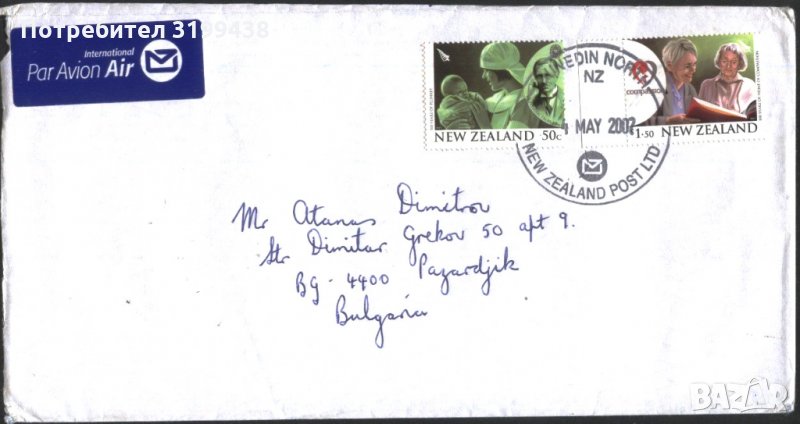 Потребител 3199438
International
Par Avion Air
NEW ZEALAND 50c
compassion
1·50 NEW ZEALAND
NEDIN NORTH
NZ
MAY 2007
NEW ZEALAND POST LTD
Mr Atanas Dimitrov
Str Dimitar Grekov 50 apt 9.
BG - 4400 Pazardjik
Bulgaria
BAZAR